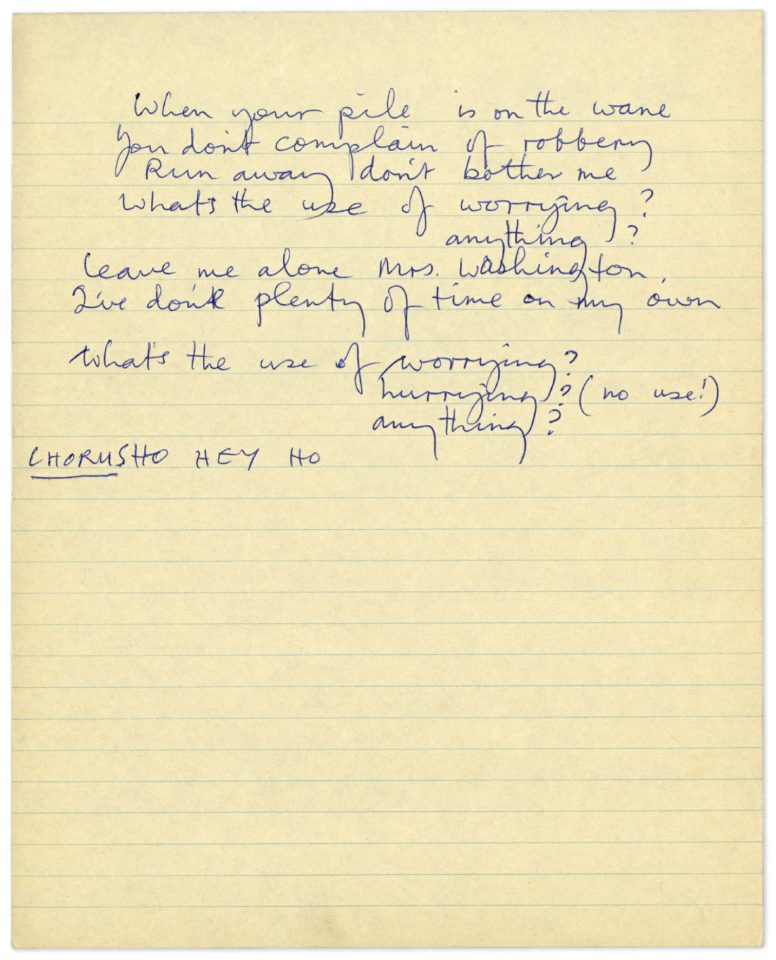 When your pile is on the wane
You don't complain of robbery
Run away don't bother me
What's the use of worrying?
anything?
Leave me alone Mrs. Washington.
I've done plenty of time on my own
What's the use of worrying?
hurrying? (no use!)
anything?
CHORUS HO HEY HO